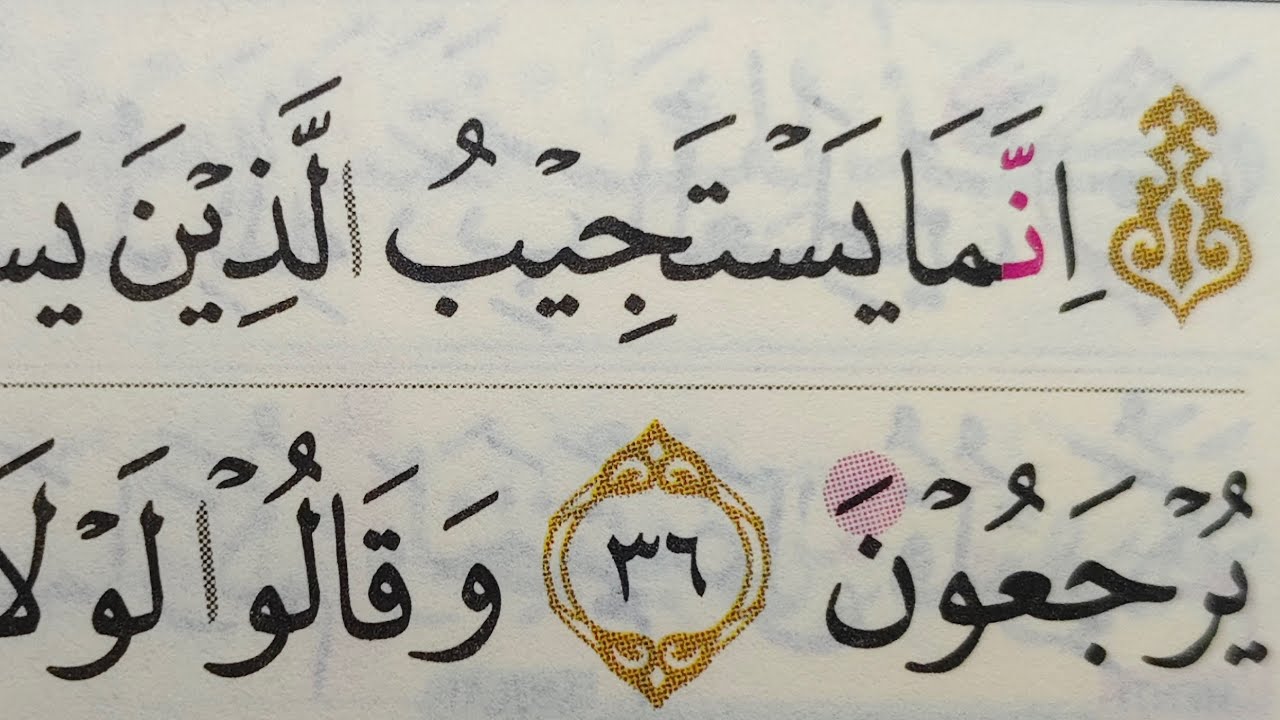 اِنَّمَا يَسْتَجِيْبُ الَّذِيْنَ
يُرْجَعُوْنَ ٣٦ وَقَالُوْا لَوْلَا